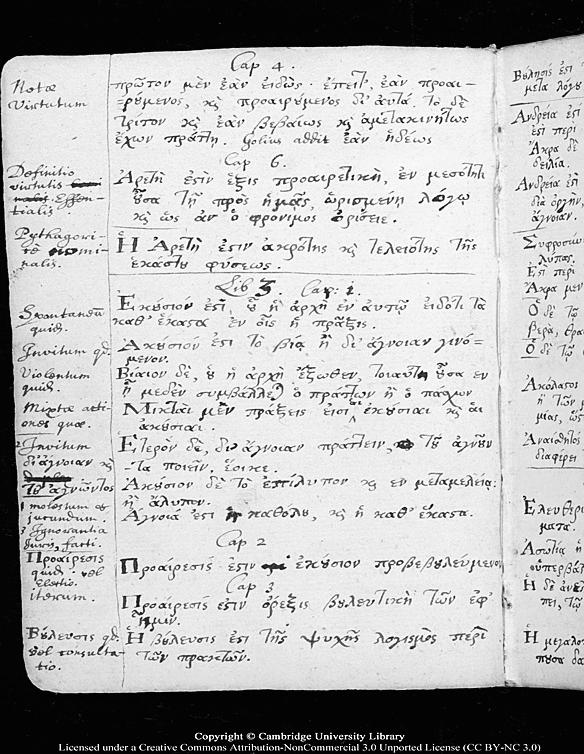 Cap 4.
Notæ
Virtutum
πρῶτον μὲν ἐὰν εἰδὼς. ἔπειτ', ἐὰν προαι-
-ρȣμενος, κὶ προαιρȣμενος δι' αυτά. τὸ δὲ
τρίτον κὶ ἐὰν βεβαίως κὶ ἀμετακινήτως
ἔχων πράττη. Golius addit ἐὰν ἡδέως
Cap 6.
Definitio
virtutis
Essen-
tialis.
Ἀρετὴ ἐστὶν ἕξις προαιρετικὴ, ἐν μεσότητι
ȣσα τῆ πρὸς ἡμᾶς, ὡρισμένη λόγῳ
κὶ ὡς ἀν ὁ φρόνιμος ὁρίσειε.
Pythagori-
cè nomi-
nalis.
Ἡ Ἀρετὴ ἐστιν ἀκρότης κὶ τελειότης τῆς
ἑκάστȣ φύσεως.
Lib 3. Cap: 1.
Spontaneū
quid.
Ἑκȣσιόν ἐστι, ȣ ἡ ἀρχὴ ἐν αυτῷ εἰδότι τὰ
καθ' ἕκαστα ἐν οἷς ἡ πρᾶξις.
Invitum qd.
Ἀκȣσιον ἐστι τὸ βίᾳ ἢ δι' ἄγνοιαν γινό-
μενον.
Violentum
quid.
Βίαιον δὲ, ȣ ἡ ἀρχὴ ἔξωθεν, τοιαυτη ȣσα εν
ἧ μεδὲν συμβάλλει ὁ πράττων ἢ ὁ πάσχων
Mixtæ acti-
ones quæ.
Μικταὶ μὲν πράξεις εἰσὶ ἑκȣσιαι κὶ αἱ
ἀκȣσιαι.
Invitum
δι' ἄγνοιαν κὶ
τȣ ἀγνοῶντος
Ἕτερὸν δὲ, δι' ἄγνοιαν πράττειν, τȣ ἀγνȣν
-τα ποιεῖν, ἔοικε.
1 molestum &
jucundum.
Ἀκȣσιον δὲ τὸ ἐπίλυπον κὶ εν μεταμελείᾳ:
ἢ ἄλυπον.
Ignorantia
juris, facti.
Ἄγνοιά ἐστι ἡ καθόλȣ, κὶ ἡ καθ' ἕκαστα.
Cap 2
Προαίρεσις
quid. vel
Electio.
Προαίρεσις ἐστιν ἑκȣσιον προβεβȣλευμένον
Cap 3
iterum.
Προαίρεσίς ἐστιν ὄρεξις βȣλευτικὴ τῶν ἐφ'
ἡμῖν.
Βȣλευσις qd.
vel consulta-
tio.
Ἡ βȣλευσις ἐστι τῆς ψυχῆς λογισμὸς περὶ
τῶν πρακτῶν.
Βȣλησίς ἐστι
μετα λόγȣ
Ἀνδρεία ἐστι
ἐστὶ περὶ
Ἄκρα δὲ
δειλία.
Ἀνδρεία ἐστι
διὰ ὀργὴν,
ἄγνοιαν.
Σωφροσύν
λυπας.
Ἐστι περὶ
Ἄκρα μεν
Ὁ δὲ τῷ
Ὁ δὲ τῷ
Ἀκόλαστος
ἢ τῶν
μιας, ὡς
Ἀναισθητὸς
διαφέρει
Ἐλευθερι
ματα.
Ἀσωτία ἡ
ὑπερβα
Ἡ δὲ ἀνε
Ἡ μεγαλο
Copyright © Cambridge University Library
Licensed under a Creative Commons Attribution-NonCommercial 3.0 Unported License (CC BY-NC 3.0)